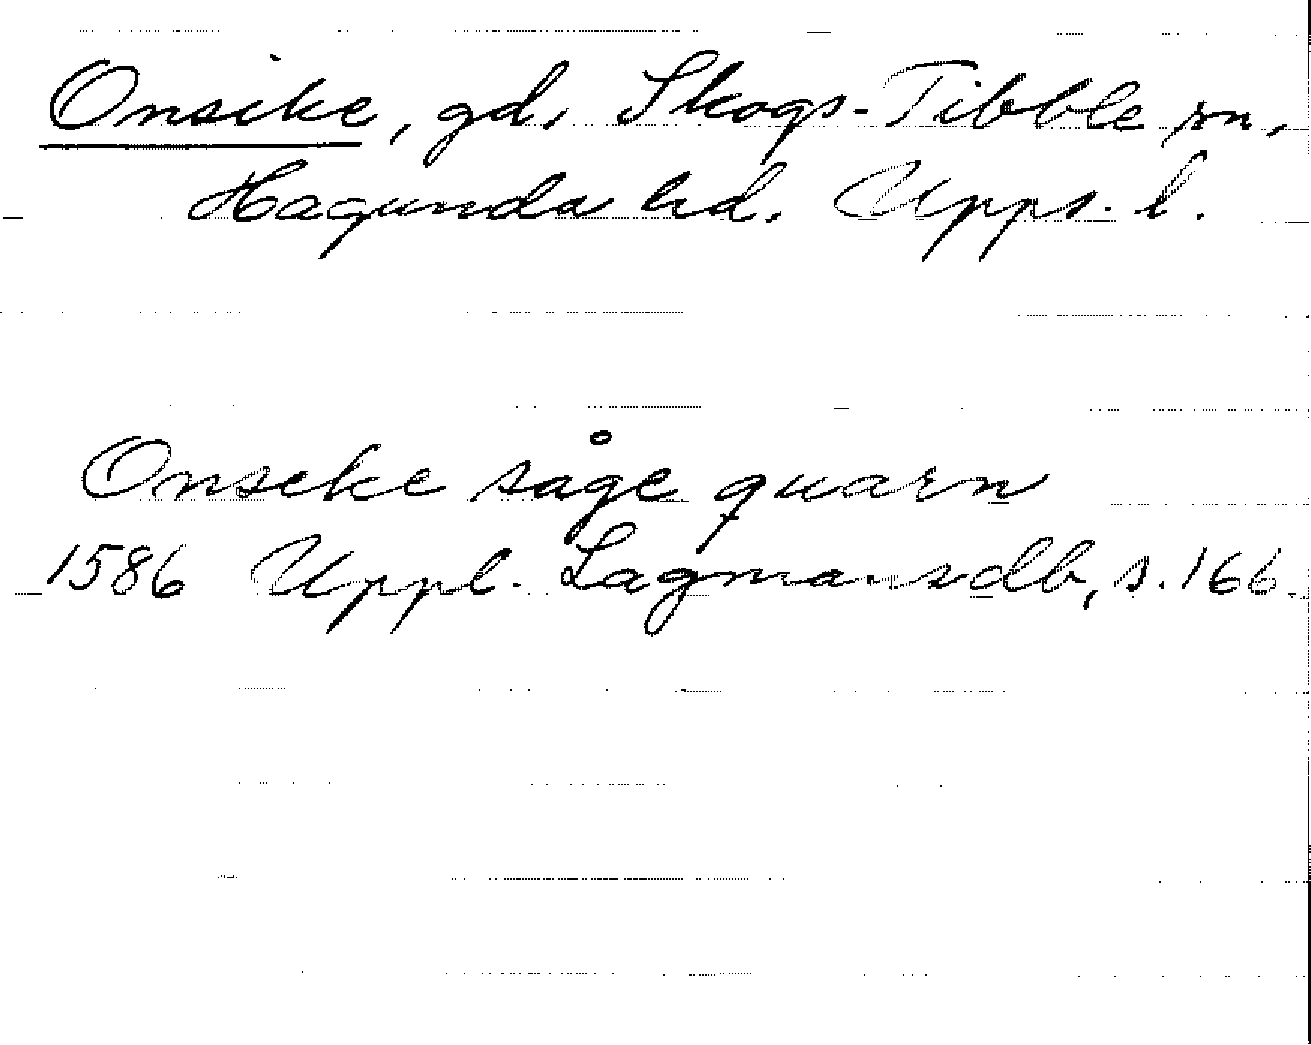 Onsike, gd, Skogs-Tibble sn,
Hagunda hd. Upps. l.
Onseke såge quarn
1586 Uppl. Lagmansdb, s. 166.